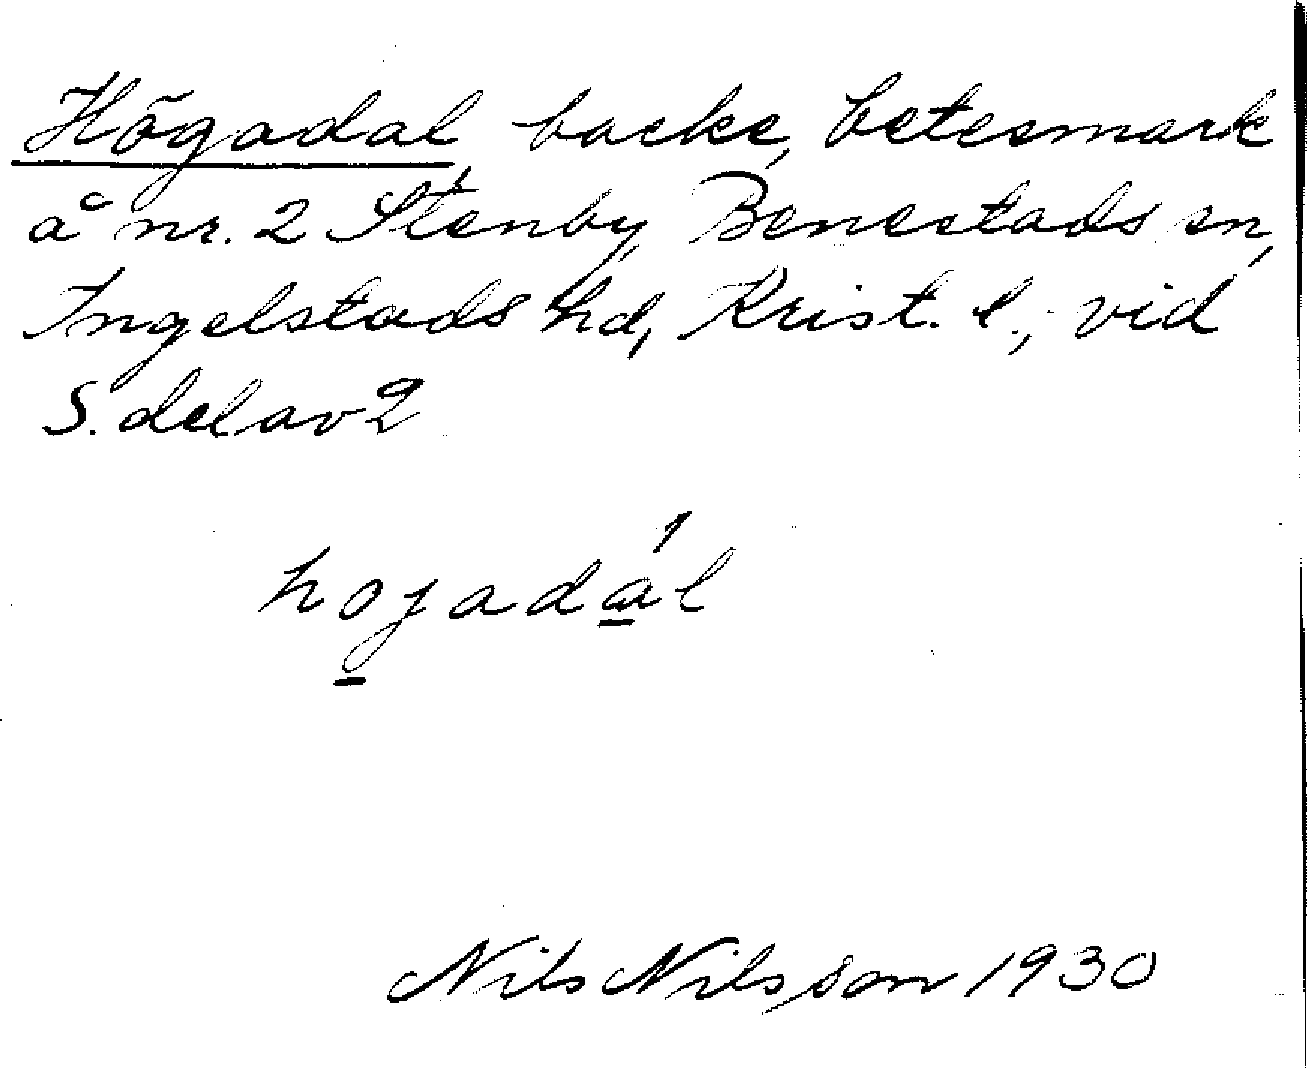 Högadal, backe, betesmark
å nr. 2 Stenby, Benestads sn,
Ingelstads hd, Krist. l., vid
S. del av 2
hojadál
Nils Nilsson 1930